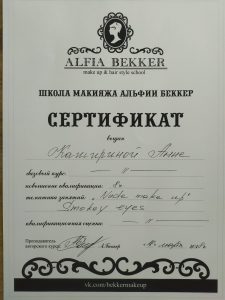 ALFIA BEKKER
make up & hair style school
ШКОЛА МАКИЯЖА АЛЬФИИ БЕККЕР
СЕРТИФИКАТ
выдан
Анне
базовый курс: — " —
повышение квалификации: 8ч
тематика занятий: „Nude make up"
Smokey eyes
квалификационная оценка: — " —
Преподаватель
авторского курса
А.Беккер
vk.com/bekkermakeup